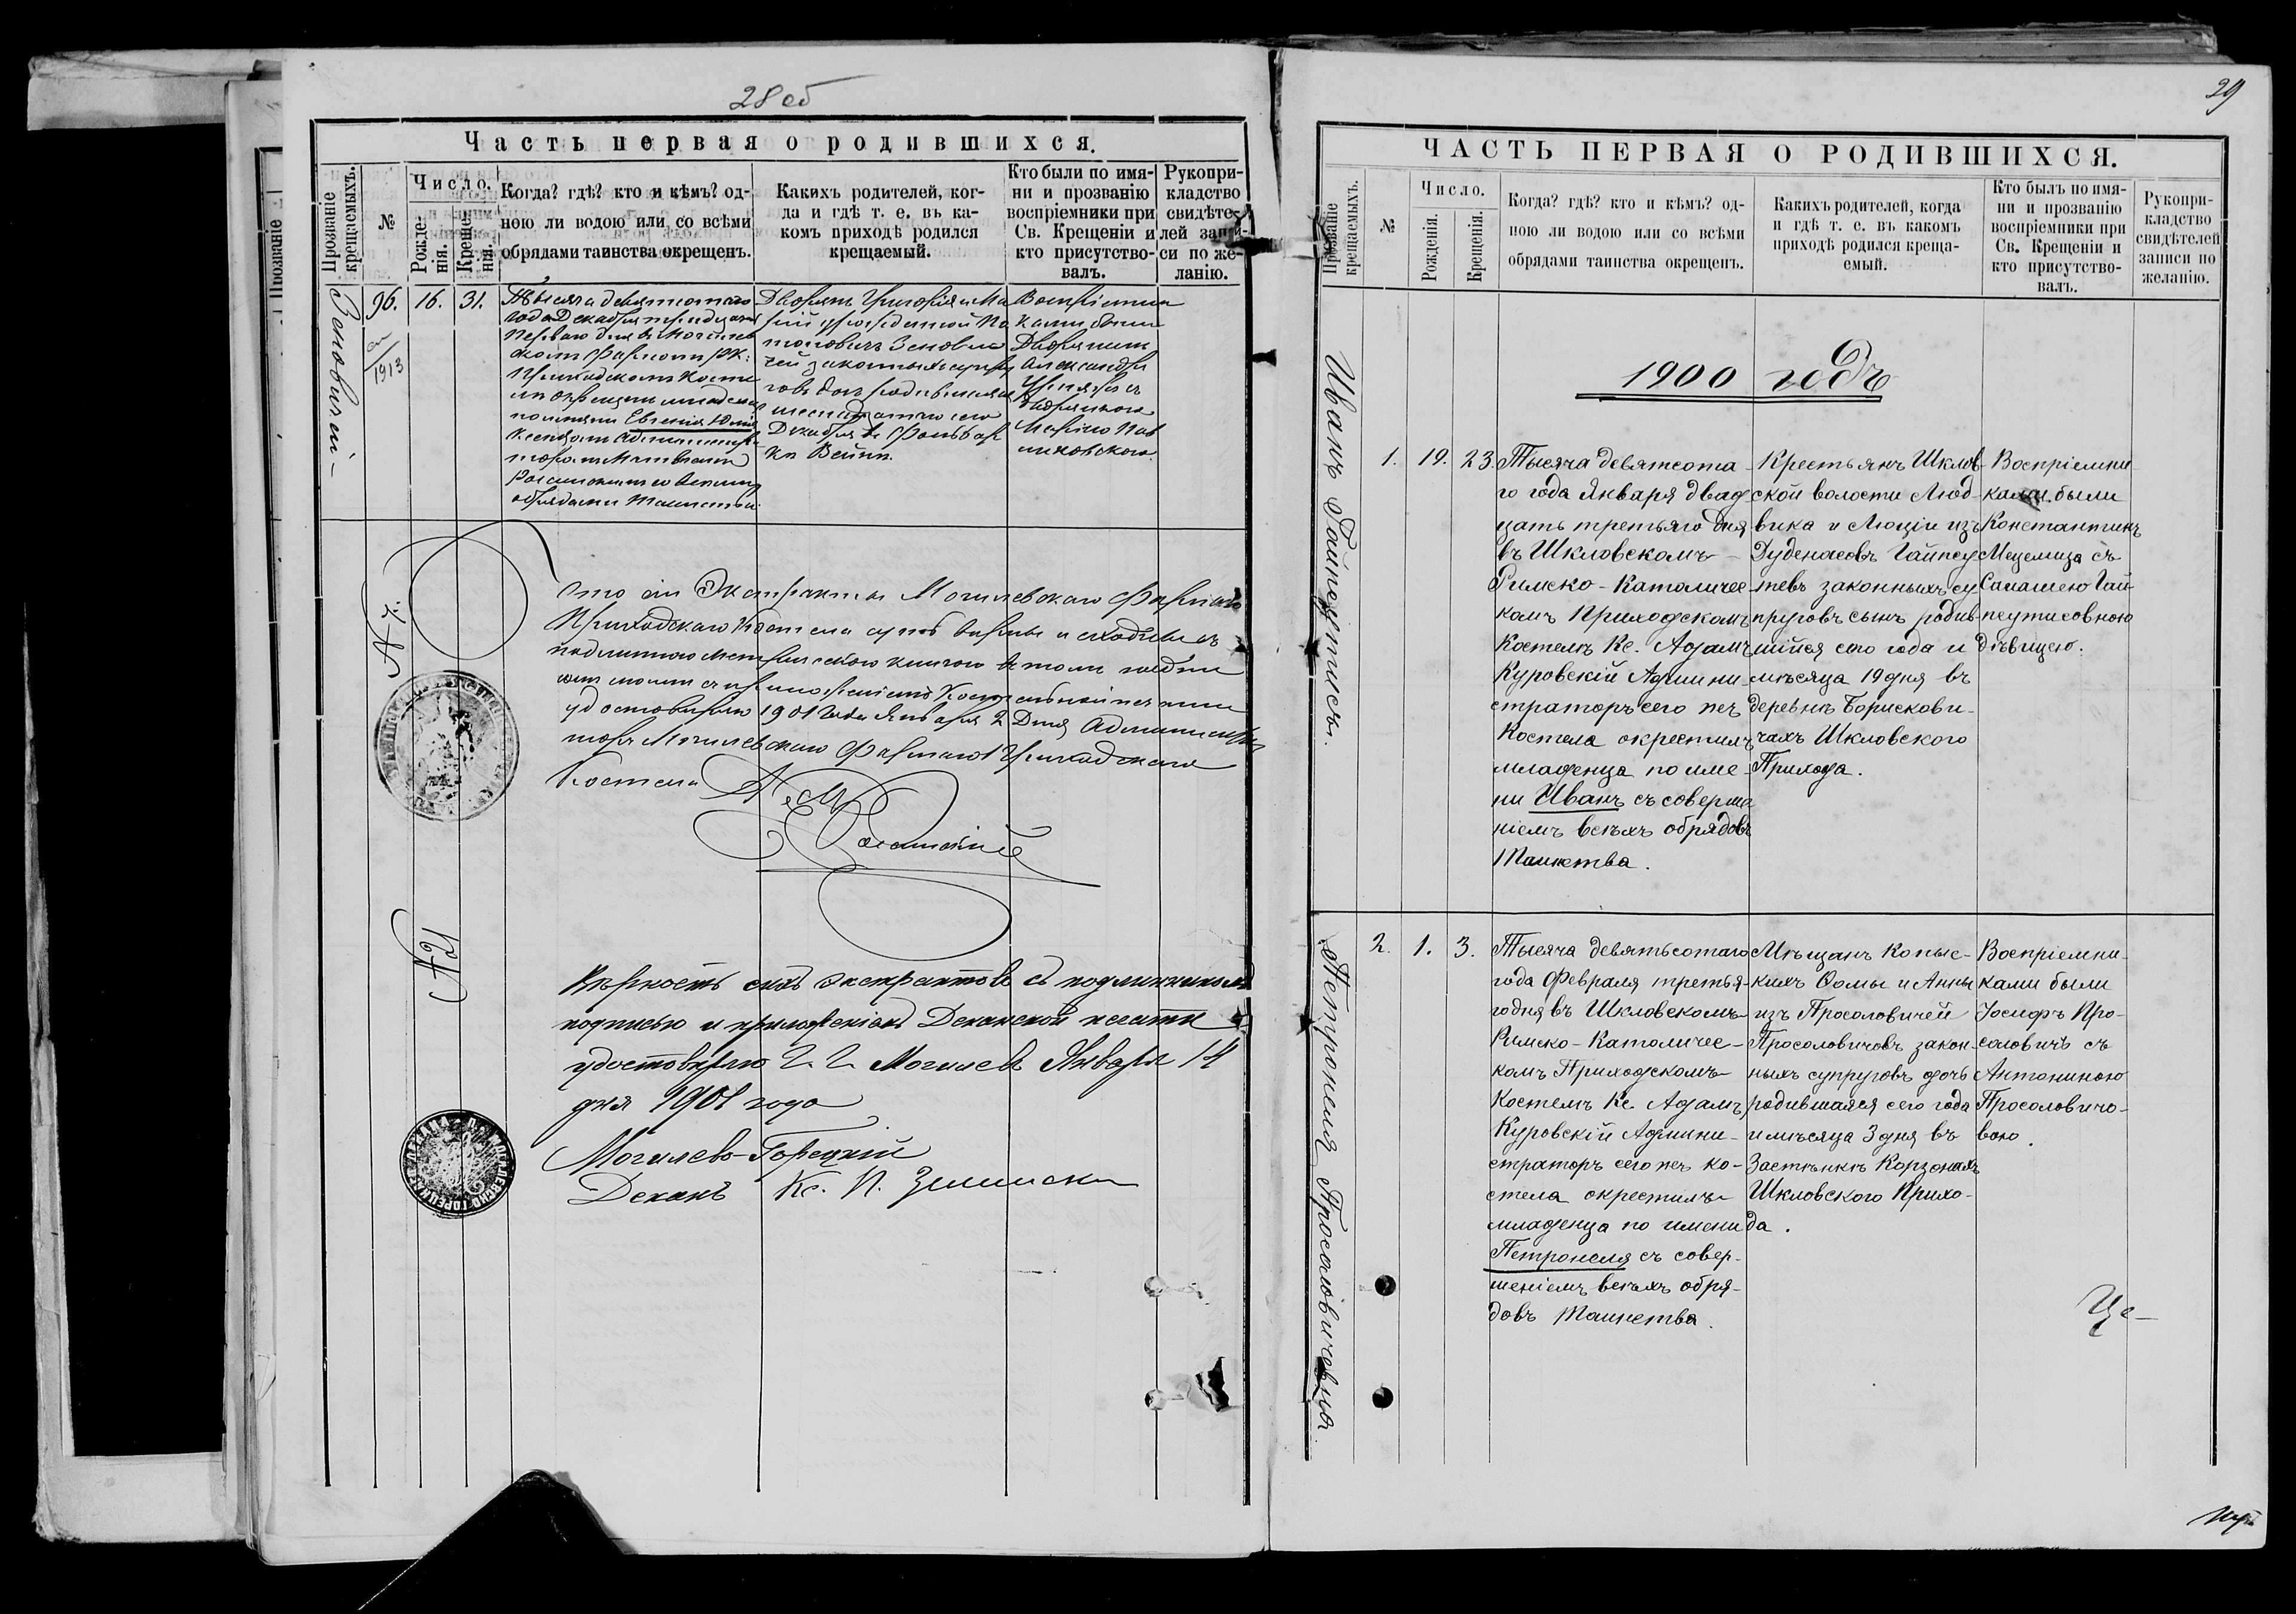 28 об
Часть первая о родившихся.
Прозваніе крещаемыхъ.
№
Число.
Рожденія.
Крещенія.
Когда? гдѣ? кто и кѣмъ? од-
ною ли водою или со всѣми
обрядами таинства окрещенъ.
Какихъ родителей, ког-
да и гдѣ т. е. въ ка-
комъ приходѣ родился
крещаемый.
Кто были по име-
ни и прозванію
воспріемники при
Св. Крещеніи и
кто присутство-
валъ.
Рукопри-
кладство
свидѣте-
лей запи-
си по же-
ланію.
96.
1913
16.
31.
Тысяча девятисотаго
года Декабря тридцать
перваго дня въ Могилев
скомъ Фарномъ РК:
Приходскомъ Косте
лѣ окрещенъ младенецъ
по имени Евгенія Юлія
Ксендзомъ Администра
торомъ
со всѣми
обрядами Таинства.
Дворянъ Григорія и Ма
ріи урожденной По
Зенович
чей законныхъ супру
говъ дочь родившаяся
шестнадцатаго сего
Декабря въ Фольвар
кѣ
Воспріемни
ками были
Дворянинъ
Александръ
съ
Дворянкою
Маріею Пав
ликовскою.
Что сіи Экстракты Могилевскаго Фарнаго
Приходскаго Костела суть вѣрны и сходны съ
подлинною метрическою книгою въ томъ подпи
сомъ моимъ съ приложеніемъ Костельной печати
удостовѣряю 1901 года Января 2 Дня Администра
торъ Могилевскаго Фарнаго Приходскаго
Костела
№ 21
Вѣрность сихъ экстрактовъ съ подлинникомъ
подписью и приложеніемъ Деканской печати
удостовѣряю Г. Г. Могилевъ Января 14
дня 1901 года
Могилево-Горецкій
Деканъ Кс. П.
29
ЧАСТЬ ПЕРВАЯ О РОДИВШИХСЯ.
Прозваніе крещаемыхъ.
№
Число.
Рожденія.
Крещенія.
Когда? гдѣ? кто и кѣмъ? од-
ною ли водою или со всѣми
обрядами таинства окрещенъ.
Какихъ родителей, когда
и гдѣ т. е. въ какомъ
приходѣ родился креща-
емый.
Кто былъ по имя-
ни и прозванію
воспріемники при
Св. Крещеніи и
кто присутство-
валъ.
Рукопри-
кладство
свидѣтелей
записи по
желанію.
1900 годъ
Иванъ Гайпсутисъ.
1.
19.
23.
Тысяча девятсота
го года Января двад
цать третьяго дня
въ Шкловскомъ
Римско-Католичес
комъ Приходскомъ
Костелѣ Кс. Адамъ
Куровскій Админи-
страторъ сего же
Костела окрестилъ
младенца по име-
ни Иванъ съ соверше
ніемъ всѣхъ обрядовъ
Таинства.
Крестьянъ Шклов-
ской волости Люд-
вика и Люціи изъ
Гайпсу
тевъ законныхъ су
пруговъ сынъ родив-
шійся сего года и
мѣсяца 19 дня въ
деревнѣ Борискови-
чахъ Шкловского
Прихода.
Воспріемни
ками были
Константинъ
съ
Гай-
псутисовною
дѣвицею.
Петронеля Просоловичовна.
2.
1.
3.
Тысяча девятьсотаго
года Февраля третья-
го дня въ Шкловскомъ
Римско-Католичес-
комъ Приходскомъ
Костелѣ Кс. Адамъ
Куровскій Админи-
страторъ сего же ко-
стела окрестилъ
младенца по имени
Петронеля съ совер-
шеніемъ всѣхъ обря-
довъ Таинства.
Мѣщанъ Копыс-
кихъ Ѳомы и Анны
изъ Просоловичей
Просоловичовъ закон-
ныхъ супруговъ дочь
родившаяся сего года
и мѣсяца 3 дня въ
Застѣнкѣ Корзонахъ
Шкловского Прихо-
да.
Воспріемни-
ками были
Іосифъ Про-
соловичъ съ
Антониною
Просоловичо-
вою.
Це-